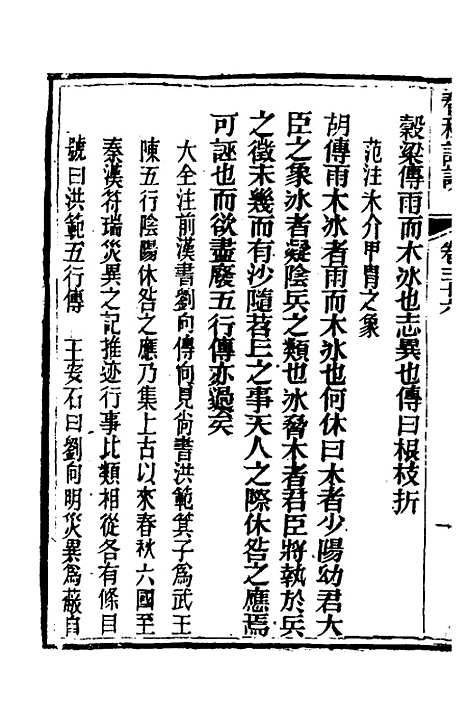 穀梁傳雨而木冰也志異也傳曰根枝折
范注氷介甲胄之象
胡傳雨木冰者雨而木冰也何休曰木者少陽幼君大
臣之象冰者凝陰兵之類也冰脅木者君臣將執於兵
之徵未幾而有沙隨苕丘之事天人之際休咎之應焉
可誣也而欲盡廢五行傳亦過矣
大全注前漢書劉向傳向見尚書洪範箕子為武王
陳五行陰陽休咎之應乃集上古以來春秋六國至
秦漢符瑞災異之記推迹行事比類相從各有條目
號曰洪範五行傳　王安石曰劉向明災異為蔽自